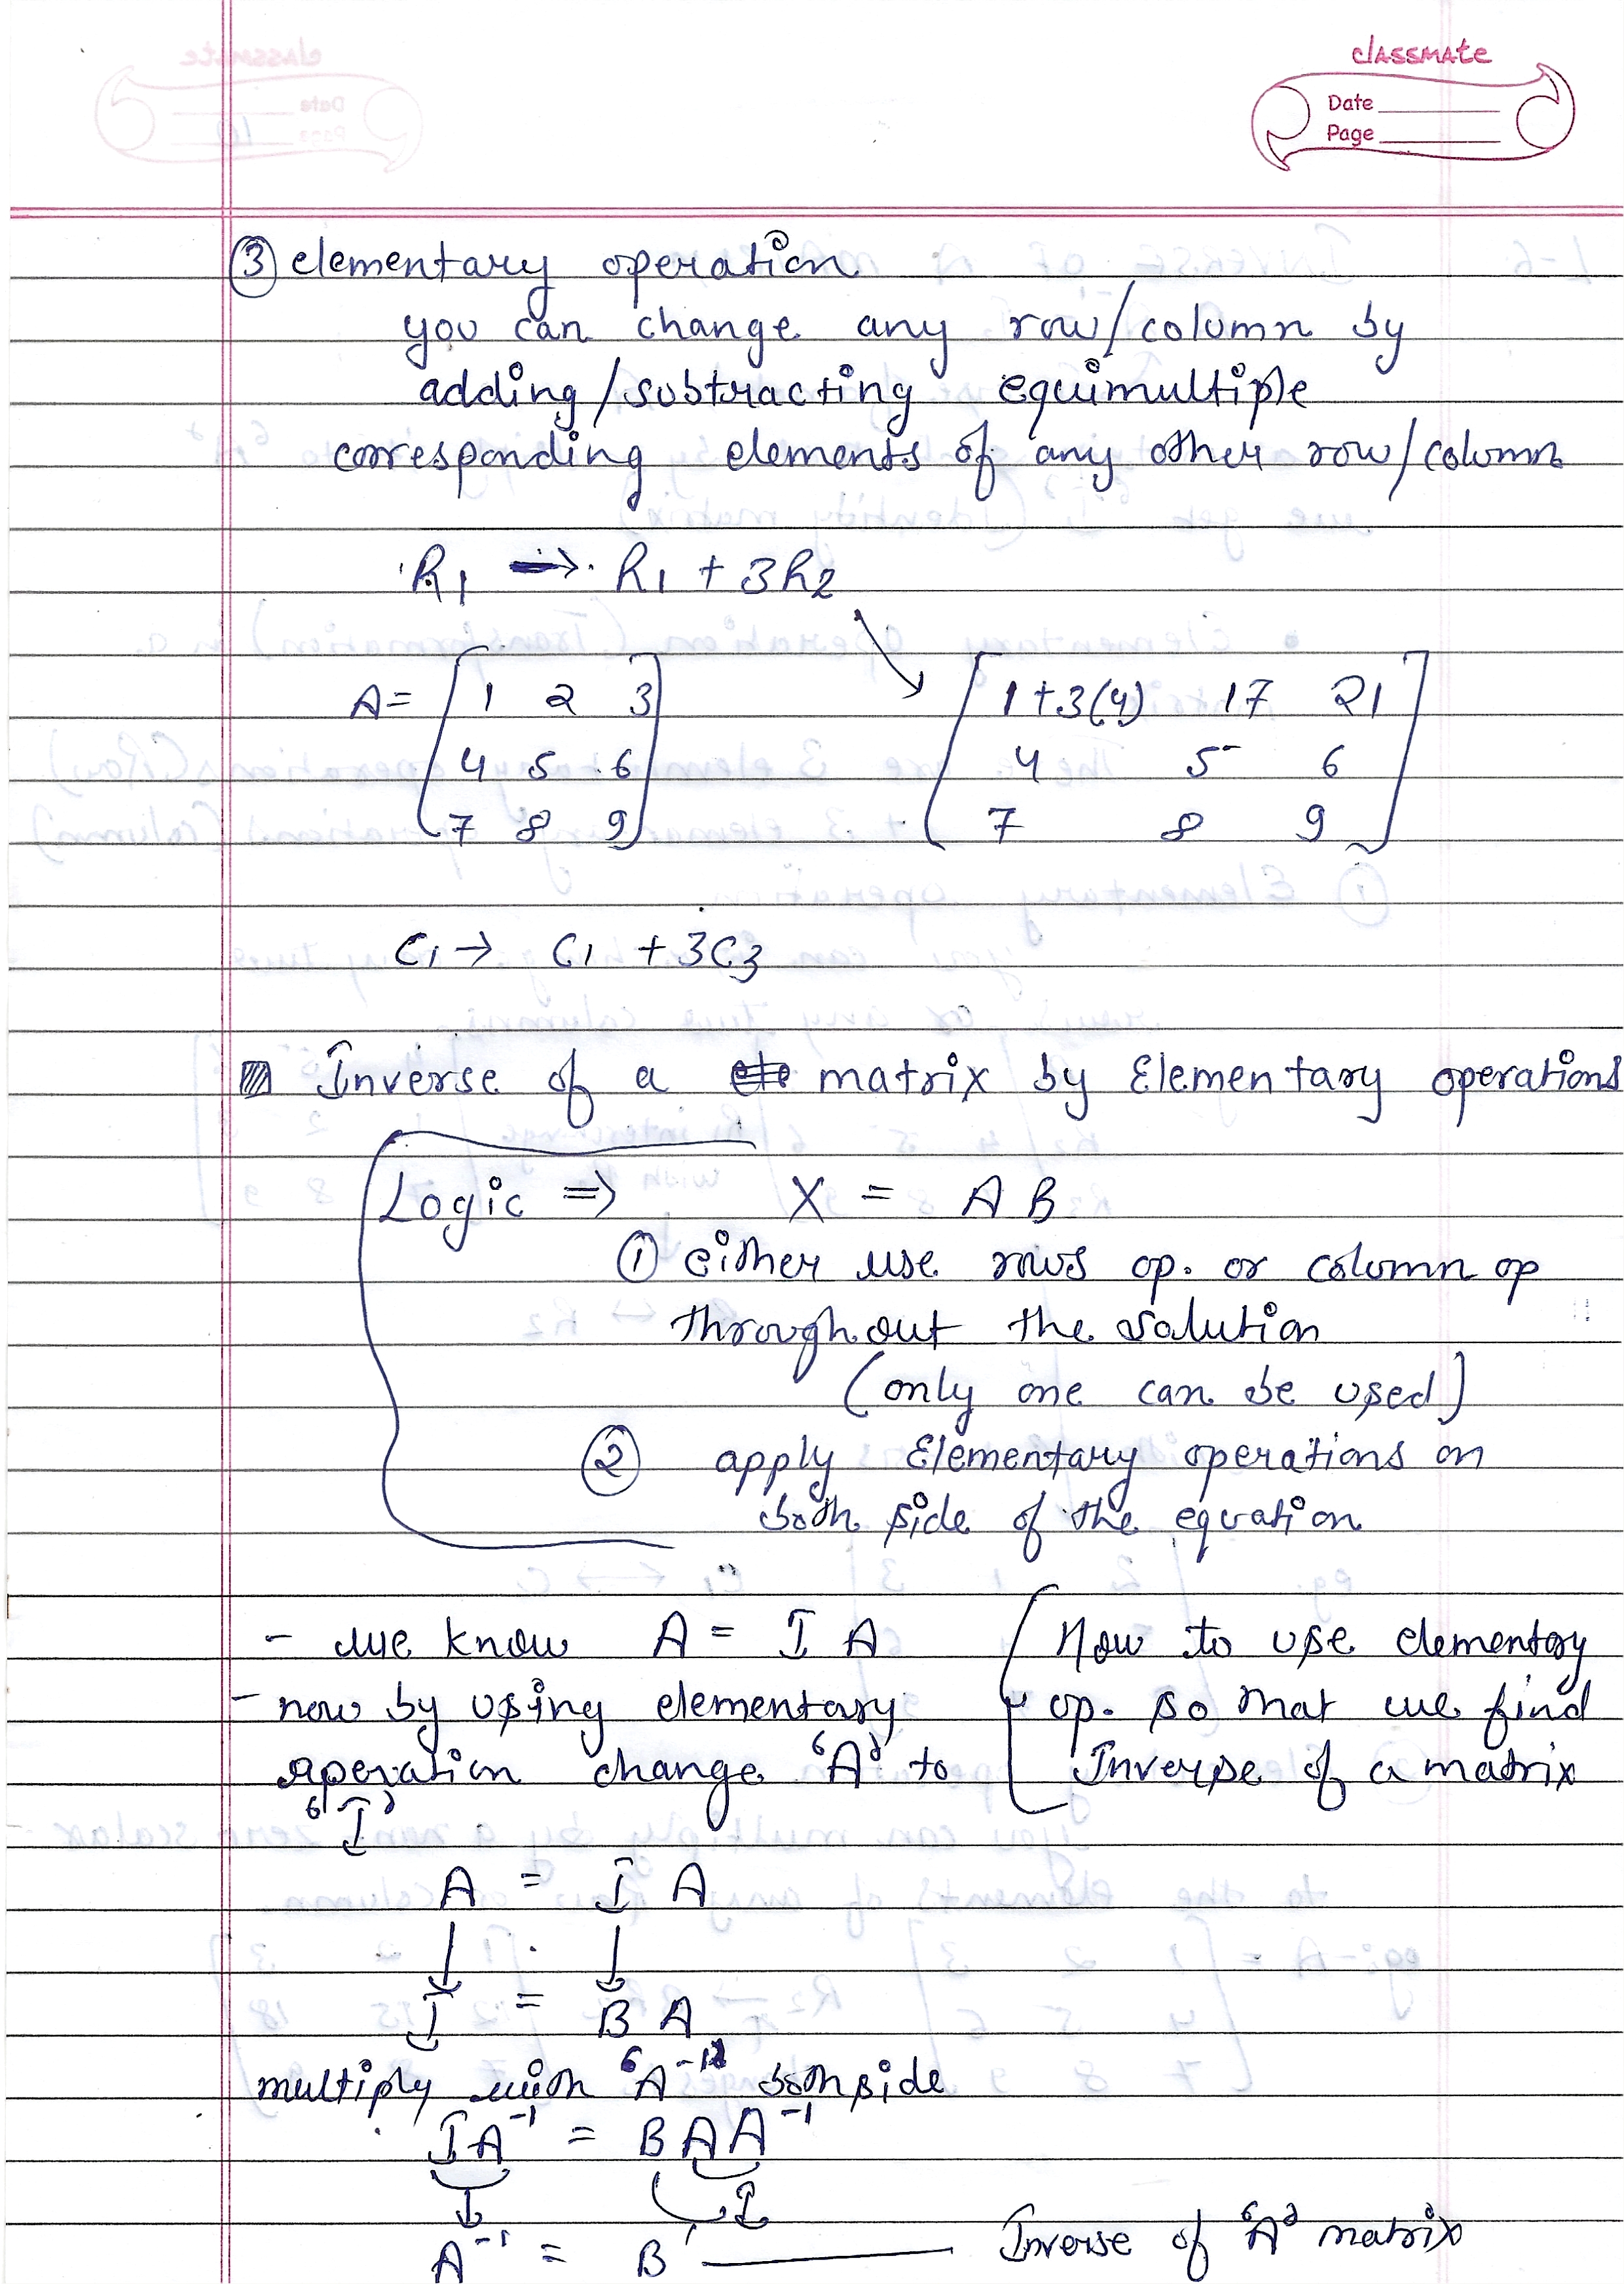 classmate
Date
Page
③ elementary operation
you can change any row/column by
adding/subtracting equimultiple
corresponding elements of any other row/column
R1 → R1 + 3R2
A = [ 1 2 3
4 5 6
7 8 9 ]
[ 1+3(4) 17 21
4 5 6
7 8 9 ]
C1 → C1 + 3C3
Inverse of a matrix by Elementary operations
Logic ⇒ X = A B
① either use rows op. or column op
throughout the solution
(only one can be used)
② apply Elementary operations on
both side of the equation
- we know A = I A
- now by using elementary
operation change 'A' to
'I'
How to use elementary
op. so that we find
Inverse of a matrix
A = I A
↓ ↓
I = B A
multiply with 'A⁻¹' both side
I A⁻¹ = B A A⁻¹
↓ I
A⁻¹ = B — Inverse of 'A' matrix